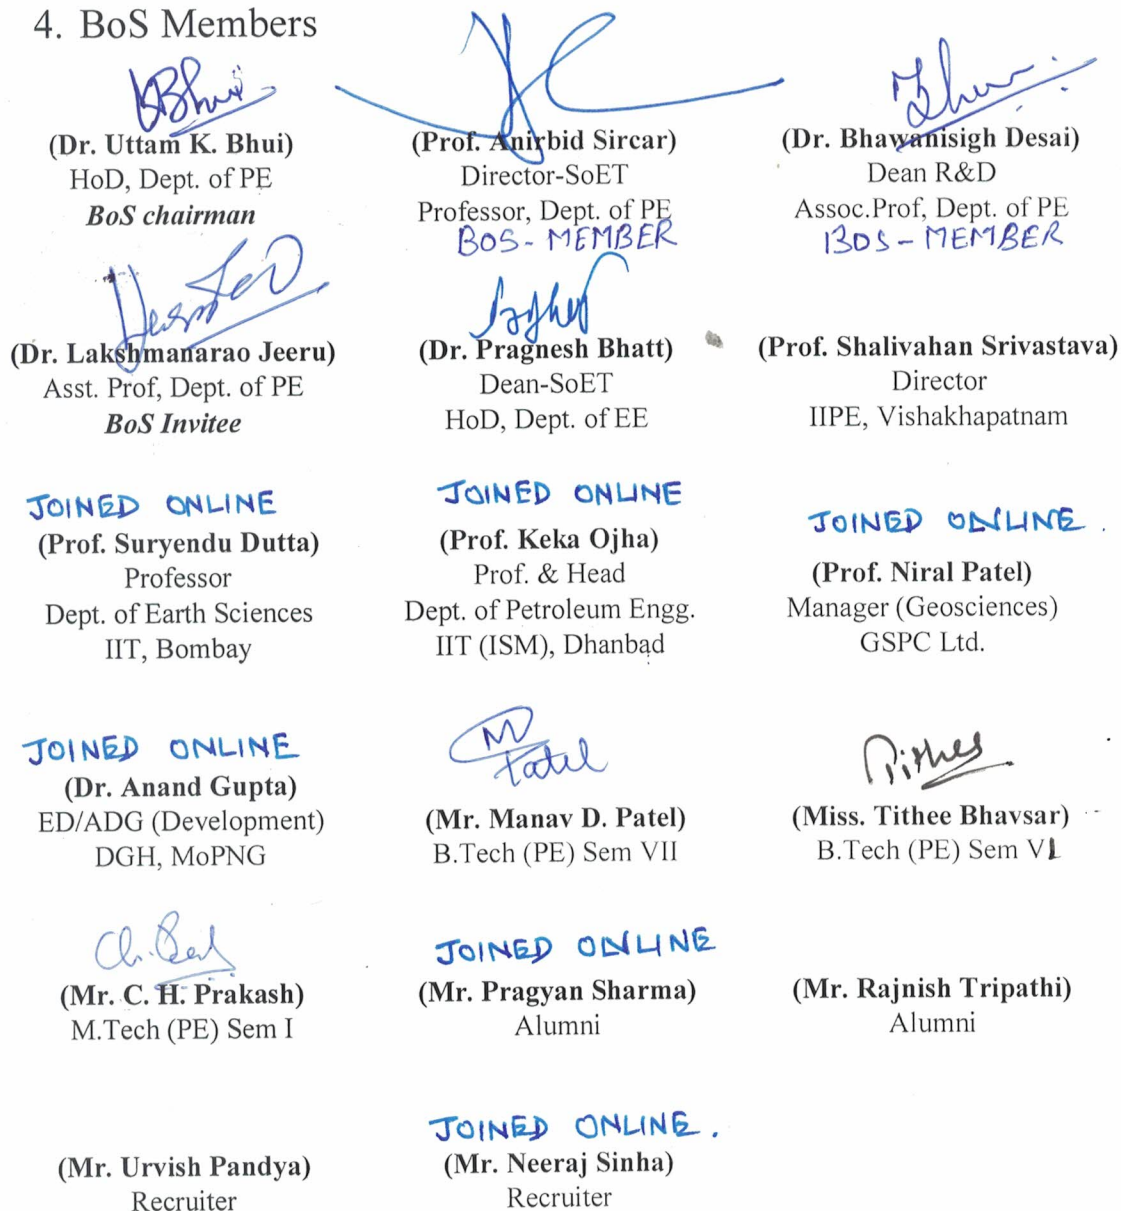 4. BoS Members
(Dr. Uttam K. Bhui)
HoD, Dept. of PE
BoS chairman
(Prof. Anirbid Sircar)
Director-SoET
Professor, Dept. of PE
BOS - MEMBER
(Dr. Bhawanisigh Desai)
Dean R&D
Assoc.Prof, Dept. of PE
BOS - MEMBER
(Dr. Lakshmanarao Jeeru)
Asst. Prof, Dept. of PE
BoS Invitee
(Dr. Pragnesh Bhatt)
Dean-SoET
HoD, Dept. of EE
(Prof. Shalivahan Srivastava)
Director
IIPE, Vishakhapatnam
JOINED ONLINE
(Prof. Suryendu Dutta)
Professor
Dept. of Earth Sciences
IIT, Bombay
JOINED ONLINE
(Prof. Keka Ojha)
Prof. & Head
Dept. of Petroleum Engg.
IIT (ISM), Dhanbad
JOINED ONLINE .
(Prof. Niral Patel)
Manager (Geosciences)
GSPC Ltd.
JOINED ONLINE
(Dr. Anand Gupta)
ED/ADG (Development)
DGH, MoPNG
M
Patel
(Mr. Manav D. Patel)
B.Tech (PE) Sem VII
(Miss. Tithee Bhavsar)
B.Tech (PE) Sem VI
(Mr. C. H. Prakash)
M.Tech (PE) Sem I
JOINED ONLINE
(Mr. Pragyan Sharma)
Alumni
(Mr. Rajnish Tripathi)
Alumni
(Mr. Urvish Pandya)
Recruiter
JOINED ONLINE.
(Mr. Neeraj Sinha)
Recruiter